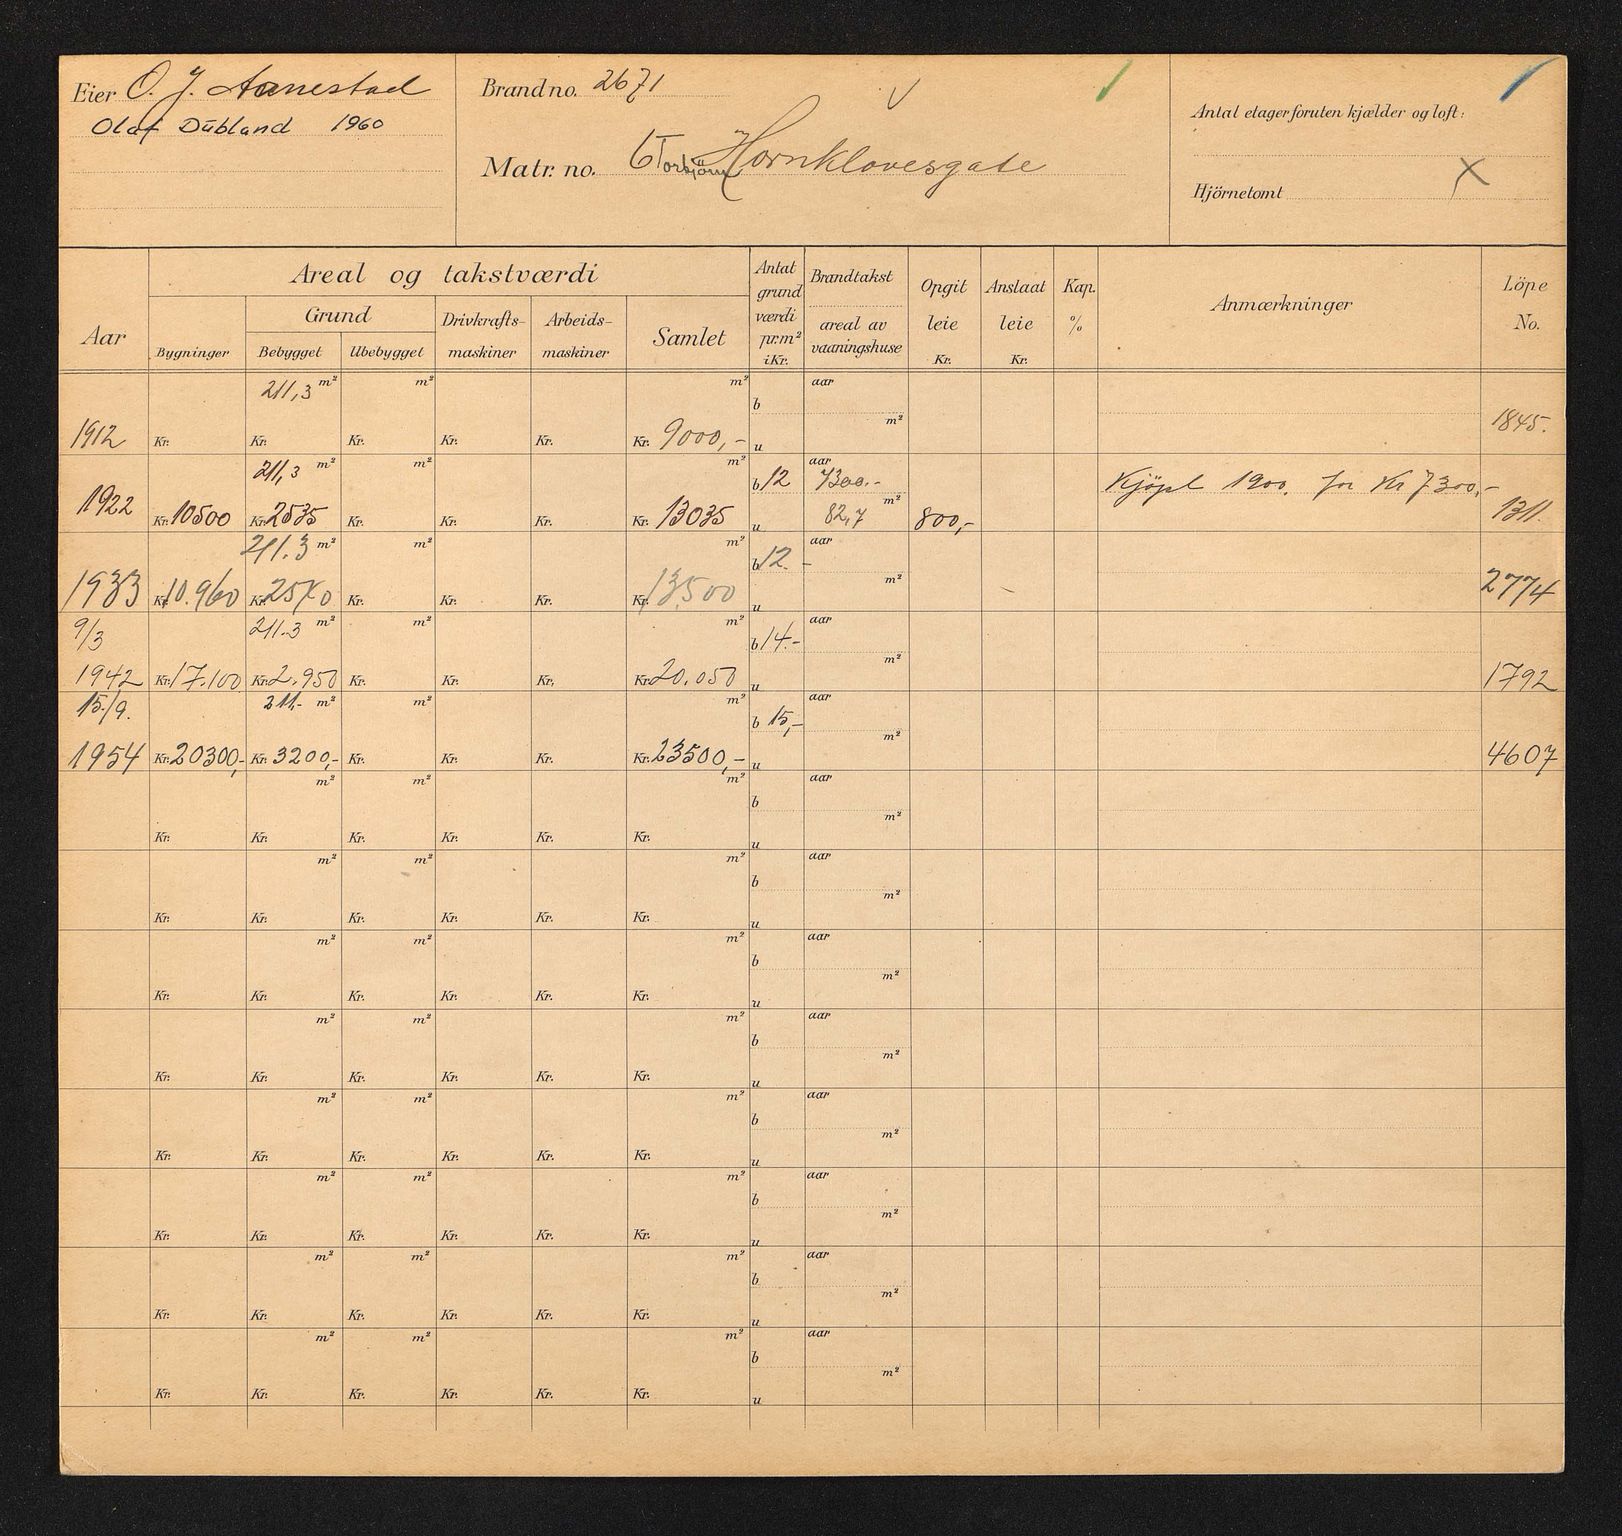 Eier O. J. Aanestad
Olaf Dubland 1960
Brand no. 2671
Matr. no. 6 Torbjörn Hornklovesgate
Antal etager foruten kjælder og loft:
Hjörnetomt X
Aar
Areal og takstværdi
Bygninger
Grund
Bebygget Ubebygget
Drivkrafts-
maskiner
Arbeids-
maskiner
Samlet
Antat
grund
værdi
pr. m²
i Kr.
Brandtakst
areal av
vaaningshuse
Opgit
leie
Kr.
Anslaat
leie
Kr.
Kap.
%
Anmærkninger
Löpe
No.
211,3 m² m² m² aar
b
m²
1912 Kr. Kr. Kr. Kr. Kr. Kr. 9000,- u 1845.
211,3 m² m² m² aar
b 12 7300.- Kjöpt 1900. for Kr 7300,-
m²
1922 Kr. 10500 Kr. 2535 Kr. Kr. Kr. Kr. 13035 u 82,7 800,- 1311.
211.3 m² m² m² aar
b 12.-
m²
1933 Kr. 10.960 Kr. 2540 Kr. Kr. Kr. Kr. 13,500 u 2774
9/3 211.3 m² m² m² aar
b 14.-
m²
1942 Kr. 17.100 Kr. 2.950 Kr. Kr. Kr. Kr. 20.050 u 1792
15./9. 211,- m² m² m² aar
b 15,-
m²
1954 Kr. 20300,- Kr. 3200,- Kr. Kr. Kr. Kr. 23500,- u 4607
m² m² m² aar
b
m²
Kr. Kr. Kr. Kr. Kr. Kr. u
m² m² m² aar
b
m²
Kr. Kr. Kr. Kr. Kr. Kr. u
m² m² m² aar
b
m²
Kr. Kr. Kr. Kr. Kr. Kr. u
m² m² m² aar
b
m²
Kr. Kr. Kr. Kr. Kr. Kr. u
m² m² m² aar
b
m²
Kr. Kr. Kr. Kr. Kr. Kr. u
m² m² m² aar
b
m²
Kr. Kr. Kr. Kr. Kr. Kr. u
m² m² m² aar
b
m²
Kr. Kr. Kr. Kr. Kr. Kr. u
m² m² m² aar
b
m²
Kr. Kr. Kr. Kr. Kr. Kr. u